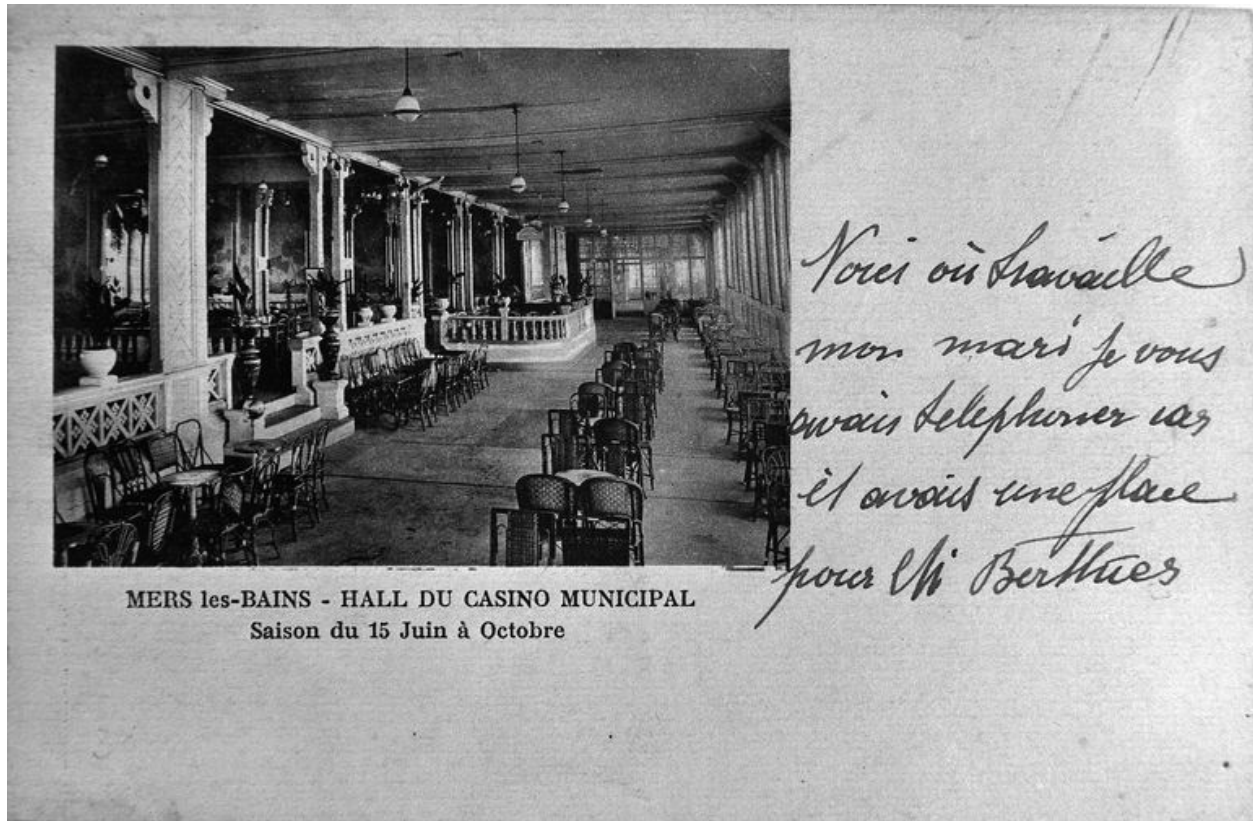 MERS les-BAINS - HALL DU CASINO MUNICIPAL
Saison du 15 Juin à Octobre
Voici où travaille
mon mari je vous
avais telephoner car
il avais une place
pour